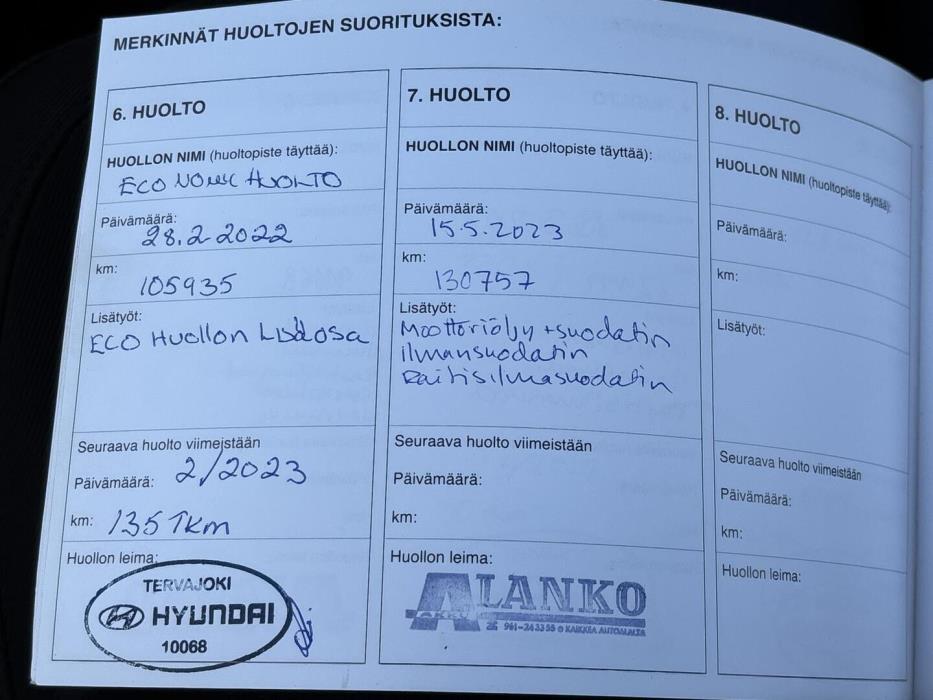 MERKINNÄT HUOLTOJEN SUORITUKSISTA:
6. HUOLTO
HUOLLON NIMI (huoltopiste täyttää):
ECO HUOLTO
Päivämäärä:
28.2.2022
km:
105935
Lisätyöt:
ECO Huollon Lisäosa
Seuraava huolto viimeistään
Päivämäärä: 2/2023
km: 135 Tkm
Huollon leima:
TERVAJOKI
HYUNDAI
10068
7. HUOLTO
HUOLLON NIMI (huoltopiste täyttää):
Päivämäärä:
15.5.2023
km:
130757
Lisätyöt:
Moottoriöljy + suodatin
ilmansuodatin
Raitisilmasuodatin
Seuraava huolto viimeistään
Päivämäärä:
km:
Huollon leima:
ALANKO
961-243355 KAIKKEA AUTOMAALTA
8. HUOLTO
HUOLLON NIMI (huoltopiste täyttää):
Päivämäärä:
km:
Lisätyöt:
Seuraava huolto viimeistään
Päivämäärä:
km:
Huollon leima: